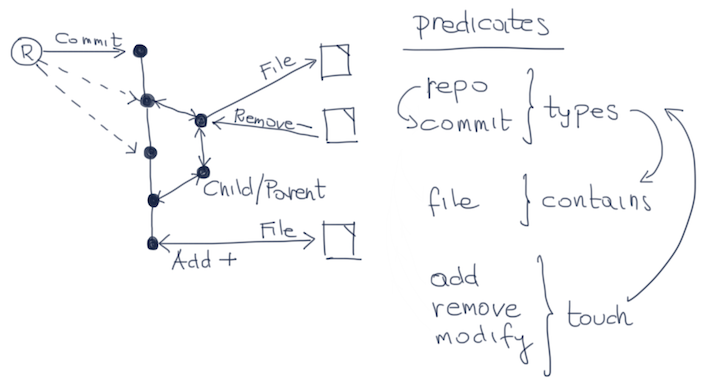 Commit
R
File
Remove -
Child/Parent
File
Add +
predicates
repo
commit
types
file
contains
add
remove
modify
touch